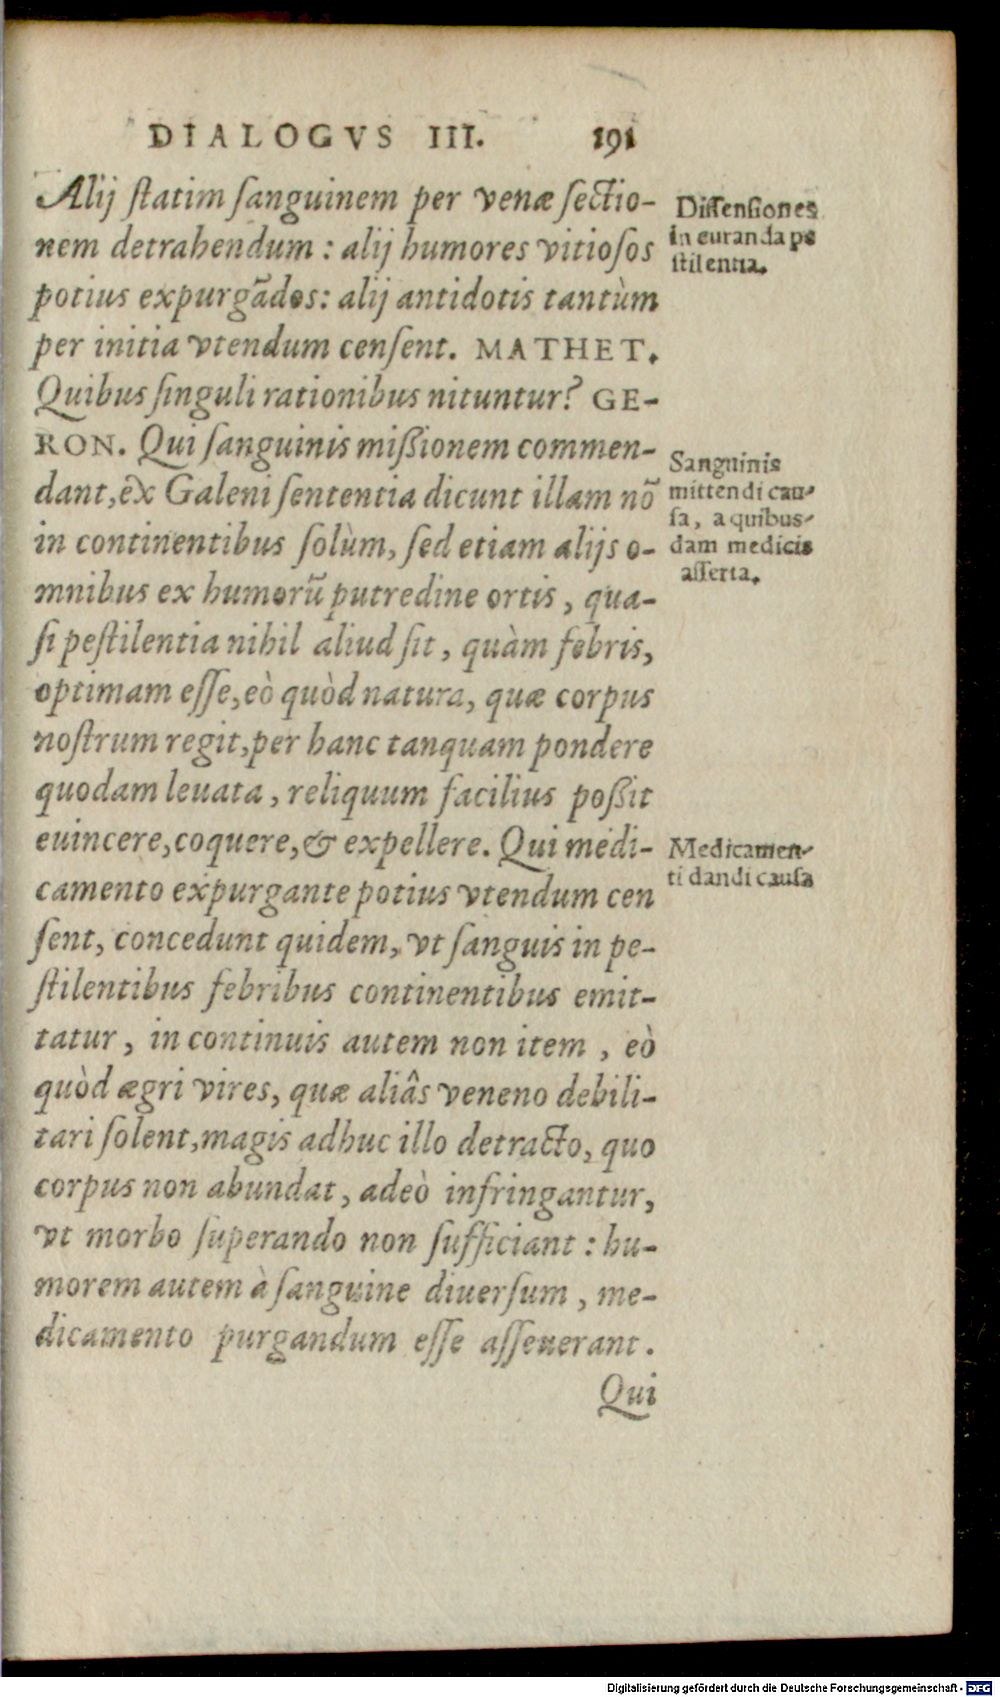 DIALOGVS III. 191
Alij ſtatim ſanguinem per venæ ſectio-
nem detrahendum : alij humores vitioſos
potius expurgãdos: alij antidotis tantùm
per initia vtendum cenſent. MATHET.
Quibus ſinguli rationibus nituntur? GE-
RON. Qui ſanguinis mißionem commen-
dant, ex Galeni ſententia dicunt illam nõ
in continentibus ſolùm, ſed etiam alijs o-
mnibus ex humorũ putredine ortis, qua-
ſi peſtilentia nihil aliud ſit, quàm febris,
optimam eſſe, eò quòd natura, quæ corpus
noſtrum regit, per hanc tanquam pondere
quodam leuata, reliquum facilius poßit
euincere, coquere, & expellere. Qui medi-
camento expurgante potius vtendum cen
ſent, concedunt quidem, vt ſanguis in pe-
ſtilentibus febribus continentibus emit-
tatur, in continuis autem non item, eò
quòd ægri vires, quæ aliâs veneno debili-
tari ſolent, magis adhuc illo detracto, quo
corpus non abundat, adeò infringantur,
vt morbo ſuperando non ſufficiant : hu-
morem autem à ſanguine diuerſum, me-
dicamento purgandum eſſe aſſeuerant.
Qui
Diſſenſiones
in curanda pe
ſtilentia.
Sanguinis
mittendi cau-
ſa, a quibus-
dam medicis
aſſerta.
Medicamen-
ti dandi cauſa
Digitalisierung gefördert durch die Deutsche Forschungsgemeinschaft - DFG